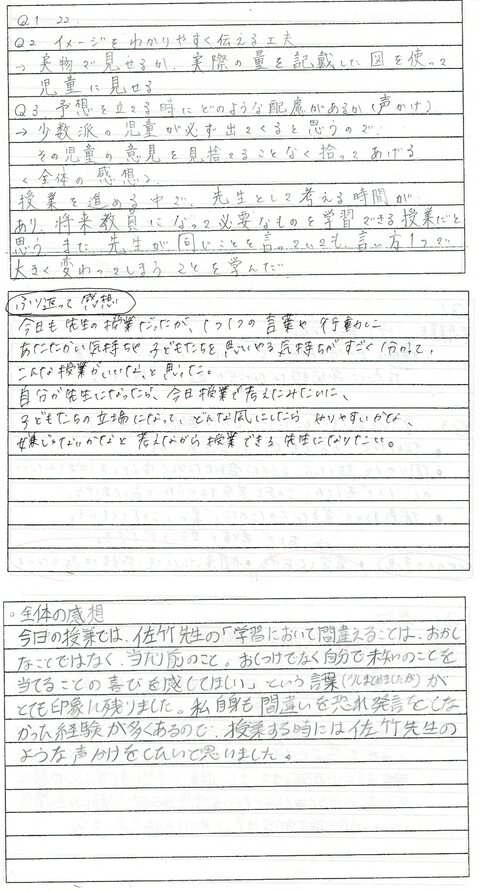 Q1 22.
Q2 イメージをわかりやすく伝える工夫
→ 実物で見せるか、実際の量を記載した図を使って
児童に見せる
Q3 予想を立てる時にどのような配慮があるか(声かけ)
→ 少数派の児童が必ず出てくると思うので、
その児童の意見を見捨てることなく拾ってあげる
<全体の感想>
授業を進める中で、先生として考える時間が
あり、将来教員になって必要なものを学習できる授業だと
思う また、先生が同じことを言っていても、言い方1つで
大きく変わってしまうことを学んだ
ふり返って感想
今日も先生の授業だったが、1つ1つの言葉や行動に
あたたかい気持ちや子どもたちを思いやる気持ちがすごく伝わって、
こんな授業がいいな、と思った。
自分が先生になったら、今日授業で考えたみたいに、
子どもたちの立場になって、どんな風にしたら やりやすいかな、
嫌じゃないかなと 考えながら授業できる 先生になりたい。
・全体の感想
今日の授業では、佐竹先生の「学習において間違えることは、おかし
なことではなく、当たり前のこと。おしつけでなく自分で未知のことを
当てることの喜びを感じてほしい」という言葉(少しまとめましたが)が
とても印象に残りました。私自身も間違いを恐れ発言をしな
かった経験が多くあるので、授業する時には佐竹先生の
ような声分けをしたいで思いました。